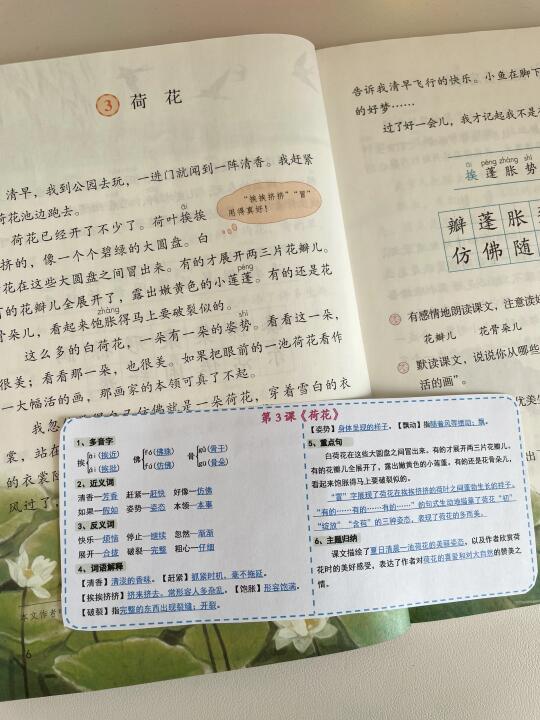 3 荷花
清早，我到公园去玩，一进门就闻到一阵清香。我赶紧
荷花池边跑去。
āi
荷花已经开了不少了。荷叶挨挨
挤挤的，像一个个碧绿的大圆盘。白
“挨挨挤挤”“冒”
用得真好！
花在这些大圆盘之间冒出来。有的才展开两三片花瓣儿。
péng
的花瓣儿全展开了，露出嫩黄色的小莲蓬。有的还是花
zhàng
骨朵儿，看起来饱胀得马上要破裂似的。
shì
这么多的白荷花，一朵有一朵的姿势。看看这一朵，
很美；看看那一朵，也很美。如果把眼前的一池荷花看作
一大幅活的画，那画家的本领可真了不起。
我忽
自己仿佛就是一朵荷花，穿着雪白的衣
裳，站在
的衣裳随
风过了
本文作者
6
告诉我清早飞行的快乐。小鱼在脚下
的好梦……
过了好一会儿，我才记起我不是
āi péng zhàng shì
挨 蓬 胀 势
瓣 蓬 胀
仿 佛 随
有感情地朗读课文，注意读好
花瓣儿 花骨朵儿
默读课文，说说你从哪些
活的画”。
优美生
第3课《荷花》
1、多音字
挨 āi（挨近） ái（挨批）
佛 fó（佛珠） fú（仿佛）
骨 gǔ（骨干） gū（骨朵）
2、近义词
清香—芳香 赶紧—赶快 好像—仿佛
如果—假如 姿势—姿态 本领—本事
3、反义词
快乐—烦恼 停止—继续 忽然—渐渐
展开—合拢 破裂—完整 粗心—仔细
4、词语解释
【清香】清淡的香味。【赶紧】抓紧时机，毫不拖延。
【挨挨挤挤】挤来挤去。常形容人多杂乱。【饱胀】形容饱满。
【破裂】指完整的东西出现裂缝；开裂。
【姿势】身体呈现的样子。【飘动】指随着风等摆动；飘。
5、重点句
白荷花在这些大圆盘之间冒出来。有的才展开两三片花瓣儿。
有的花瓣儿全展开了，露出嫩黄色的小莲蓬。有的还是花骨朵儿，
看起来饱胀得马上要破裂似的。
“冒”字展现了荷花在挨挨挤挤的荷叶之间蓬勃生长的样子。
“有的……有的……有的……”的句式生动地描摹了荷花“初”
“绽放”“含苞”的三种姿态，表现了荷花的多而美。
6、主题归纳
课文描绘了夏日清晨一池荷花的美丽姿态，以及作者欣赏荷
花时的美好感受，表达了作者对荷花的喜爱和对大自然的赞美之
情。